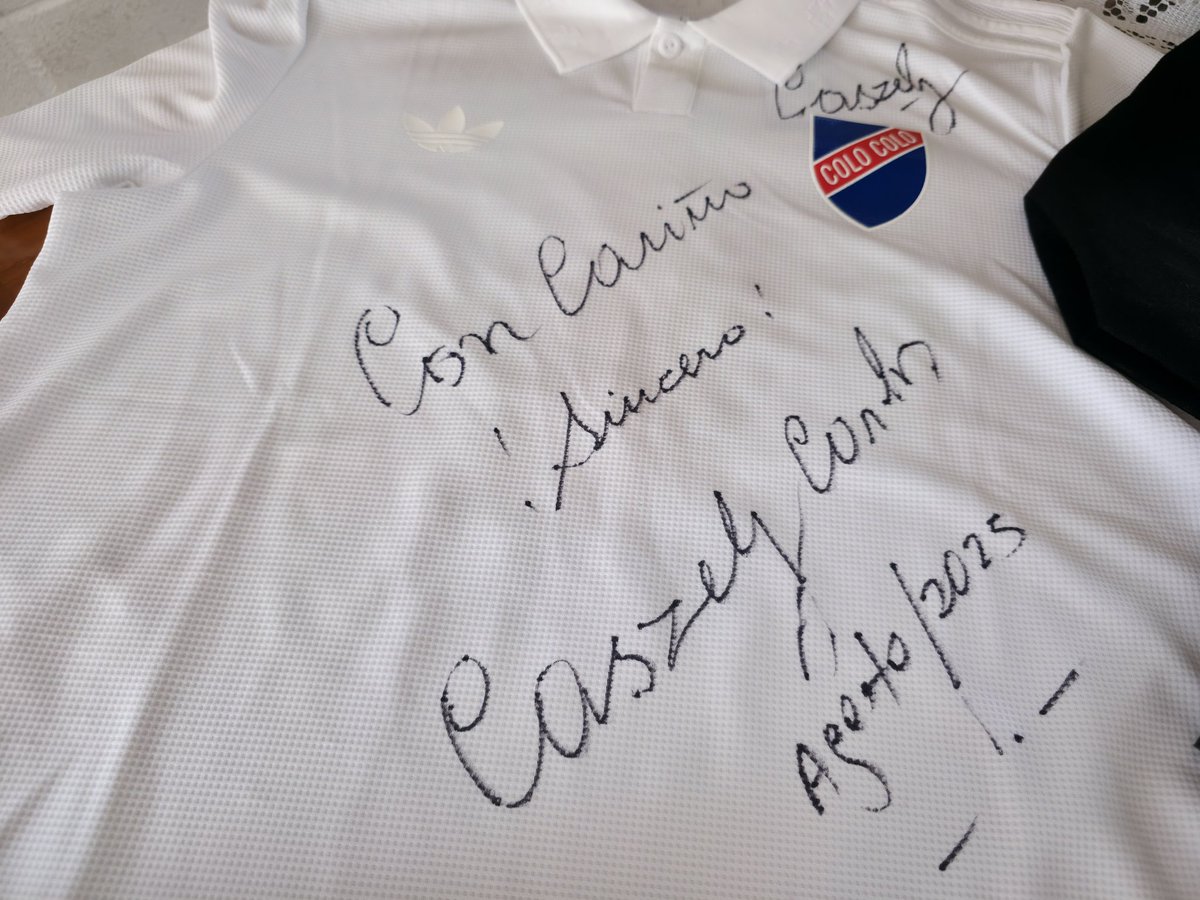 Caszely
COLO COLO
Con Cariño
¡Sincero!
Caszely Carlos
Agosto/2025.-